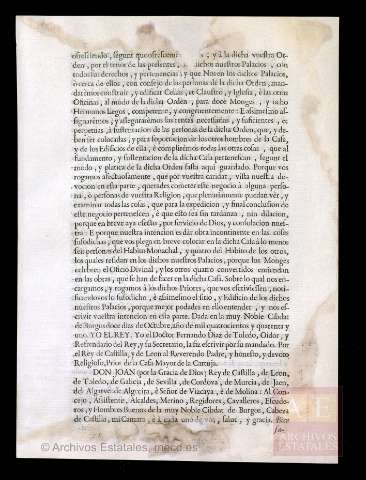 ofresciendo, segunt que ofrescemos, y à la dicha vuestra Or-
den, por el tenor de las presentes, dichos nuestros Palacios, con
todos los derechos, y pertenencias; y que Nos en los dichos Palacios,
ò cerca de ellos, con consejo de las personas de la dicha Orden, man-
daremos construir, y edificar Celdas, è Claustro, y Iglesia, è las otras
Oficinas, al modo de la dicha Orden, para doce Monges, y ocho
Hermanos legos, competente, y congruentemente: E asimesmo asi-
gnarémos, y aseguraremos las rentas necesarias, y suficientes, è
perpetuas, à sustentacion de las personas de la dicha Orden, que, y de-
ben ser colocadas; y para soportacion de los otros hombres de la Casa,
y de los Edificios de ella, è complirémos todas las otras cosas, que al
fundamento, y sustentacion de la dicha Casa pertenescen, segunt el
modo, y platica de la dicha Orden fasta aqui guardado. Porque vos
rogamos afectuosamente, que por vuestra caridat, vista nuestra de-
vocion en esta parte, querades cometer este negocio à alguna perso-
na, ò personas de vuestra Religion, que plenariamente puedan vèr, y
examinar todas las cosas, que para la expedicion, y final conclusion de
este negocio pertenescen, è que esto sea sin tardanza, nin dilacion,
porque en breve aya efecto, por servicio de Dios, y consolacion nues-
tra: E porque nuestra intencion es dàr obra incontinente en las cosas
susodichas, que vos plega en breve colocar en la dicha Casa à lo menos
seis personas del Habito Monachal, y quatro del Habito de los otros,
los quales residan en los dichos nuestros Palacios, porque los Monges
celebren el Oficio Divinal, y los otros quatro convertidos entiendan
en las obras, que se han de facer en la dicha Casa. Sobre lo qual nos en-
cargamos, y rogamos à los dichos Priores, que vos escrivissen, not-
ificandovos lo susodicho, è asimesmo el sitio, y Edificio de los dichos
nuestros Palacios, porque mejor podades en ello entender, y nos es-
crivir vuestra intencion en esta parte. Dada en la muy Noble Cibdat
de Burgos doce dias de Octubre, año de mil quatrocientos y quarenta y
uno. YO EL REY. Yo el Doctor Fernando Diaz de Toledo, Oidor, y
Refrendario del Rey, y su Secretario, la fiz escrivir por su mandado. Por
el Rey de Castilla, y de Leon al Reverendo Padre, y honesto, y devoto
Religioso, Prior de la Casa Mayor de la Cartuja.
DON JOAN (por la Gracia de Dios) Rey de Castilla, de Leon,
de Toledo, de Galicia, de Sevilla, de Cordova, de Murcia, de Jaen,
del Algarve, de Algecira, è Señor de Vizcaya, è de Molina: Al Con-
cejo, Asistente, Alcaldes, Merino, Regidores, Cavalleros, Escude-
ros, y Hombres Buenos de la muy Noble Cibdat de Burgos, Cabeza
de Castilla, mi Camara, è à cada uno de vos, salut, y gracia. Bien
© Archivos Estatales, mecd.es
ARCHIVOS
ESTATALES